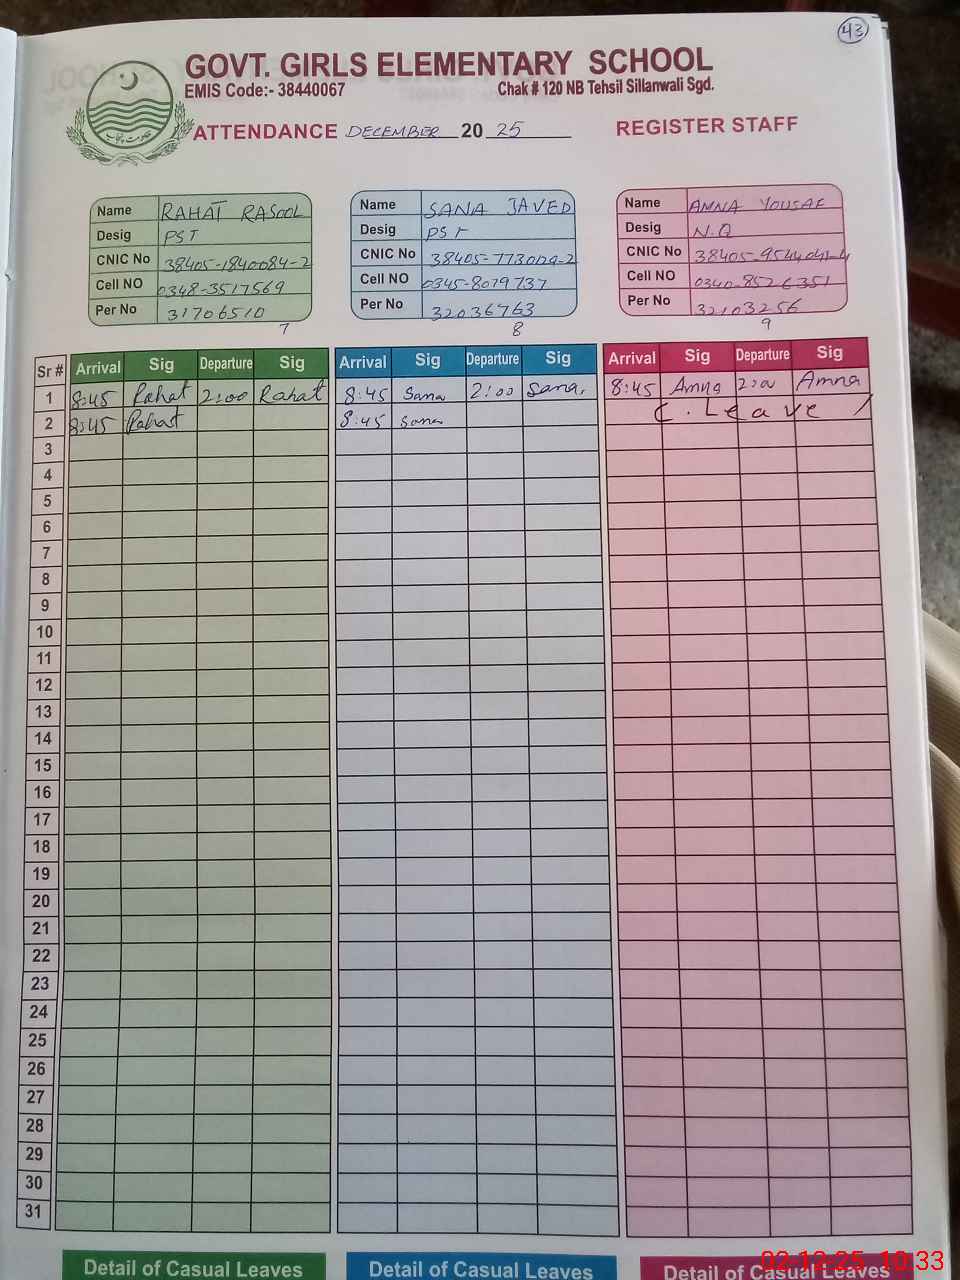 43
GOVT. GIRLS ELEMENTARY SCHOOL
EMIS Code:- 38440067 Chak # 120 NB Tehsil Sillanwali Sgd.
ATTENDANCE DECEMBER 20 25 REGISTER STAFF
حکومت پنجاب
Name RAHAT RASOOL
Desig PST
CNIC No 38405-1840084-2
Cell NO 0348-3517569
Per No 31706510
7
Name SANA JAVED
Desig PST
CNIC No 38405-7730129-2
Cell NO 0345-8079737
Per No 32036763
8
Name AMNA YOUSAF
Desig N.Q
CNIC No
Cell NO 0340-8526351
Per No 32103256
9
Sr # Arrival Sig Departure Sig Arrival Sig Departure Sig Arrival Sig Departure Sig
1 8:45 Rahat 2:00 Rahat 8:45 Sana 2:00 Sana 8:45 Amna 2:00 Amna
2 8:45 Rahat 8:45 Sana C. Leave
3
4
5
6
7
8
9
10
11
12
13
14
15
16
17
18
19
20
21
22
23
24
25
26
27
28
29
30
31
Detail of Casual Leaves Detail of Casual Leaves Detail of Casual Leaves
02-12-25 10:33